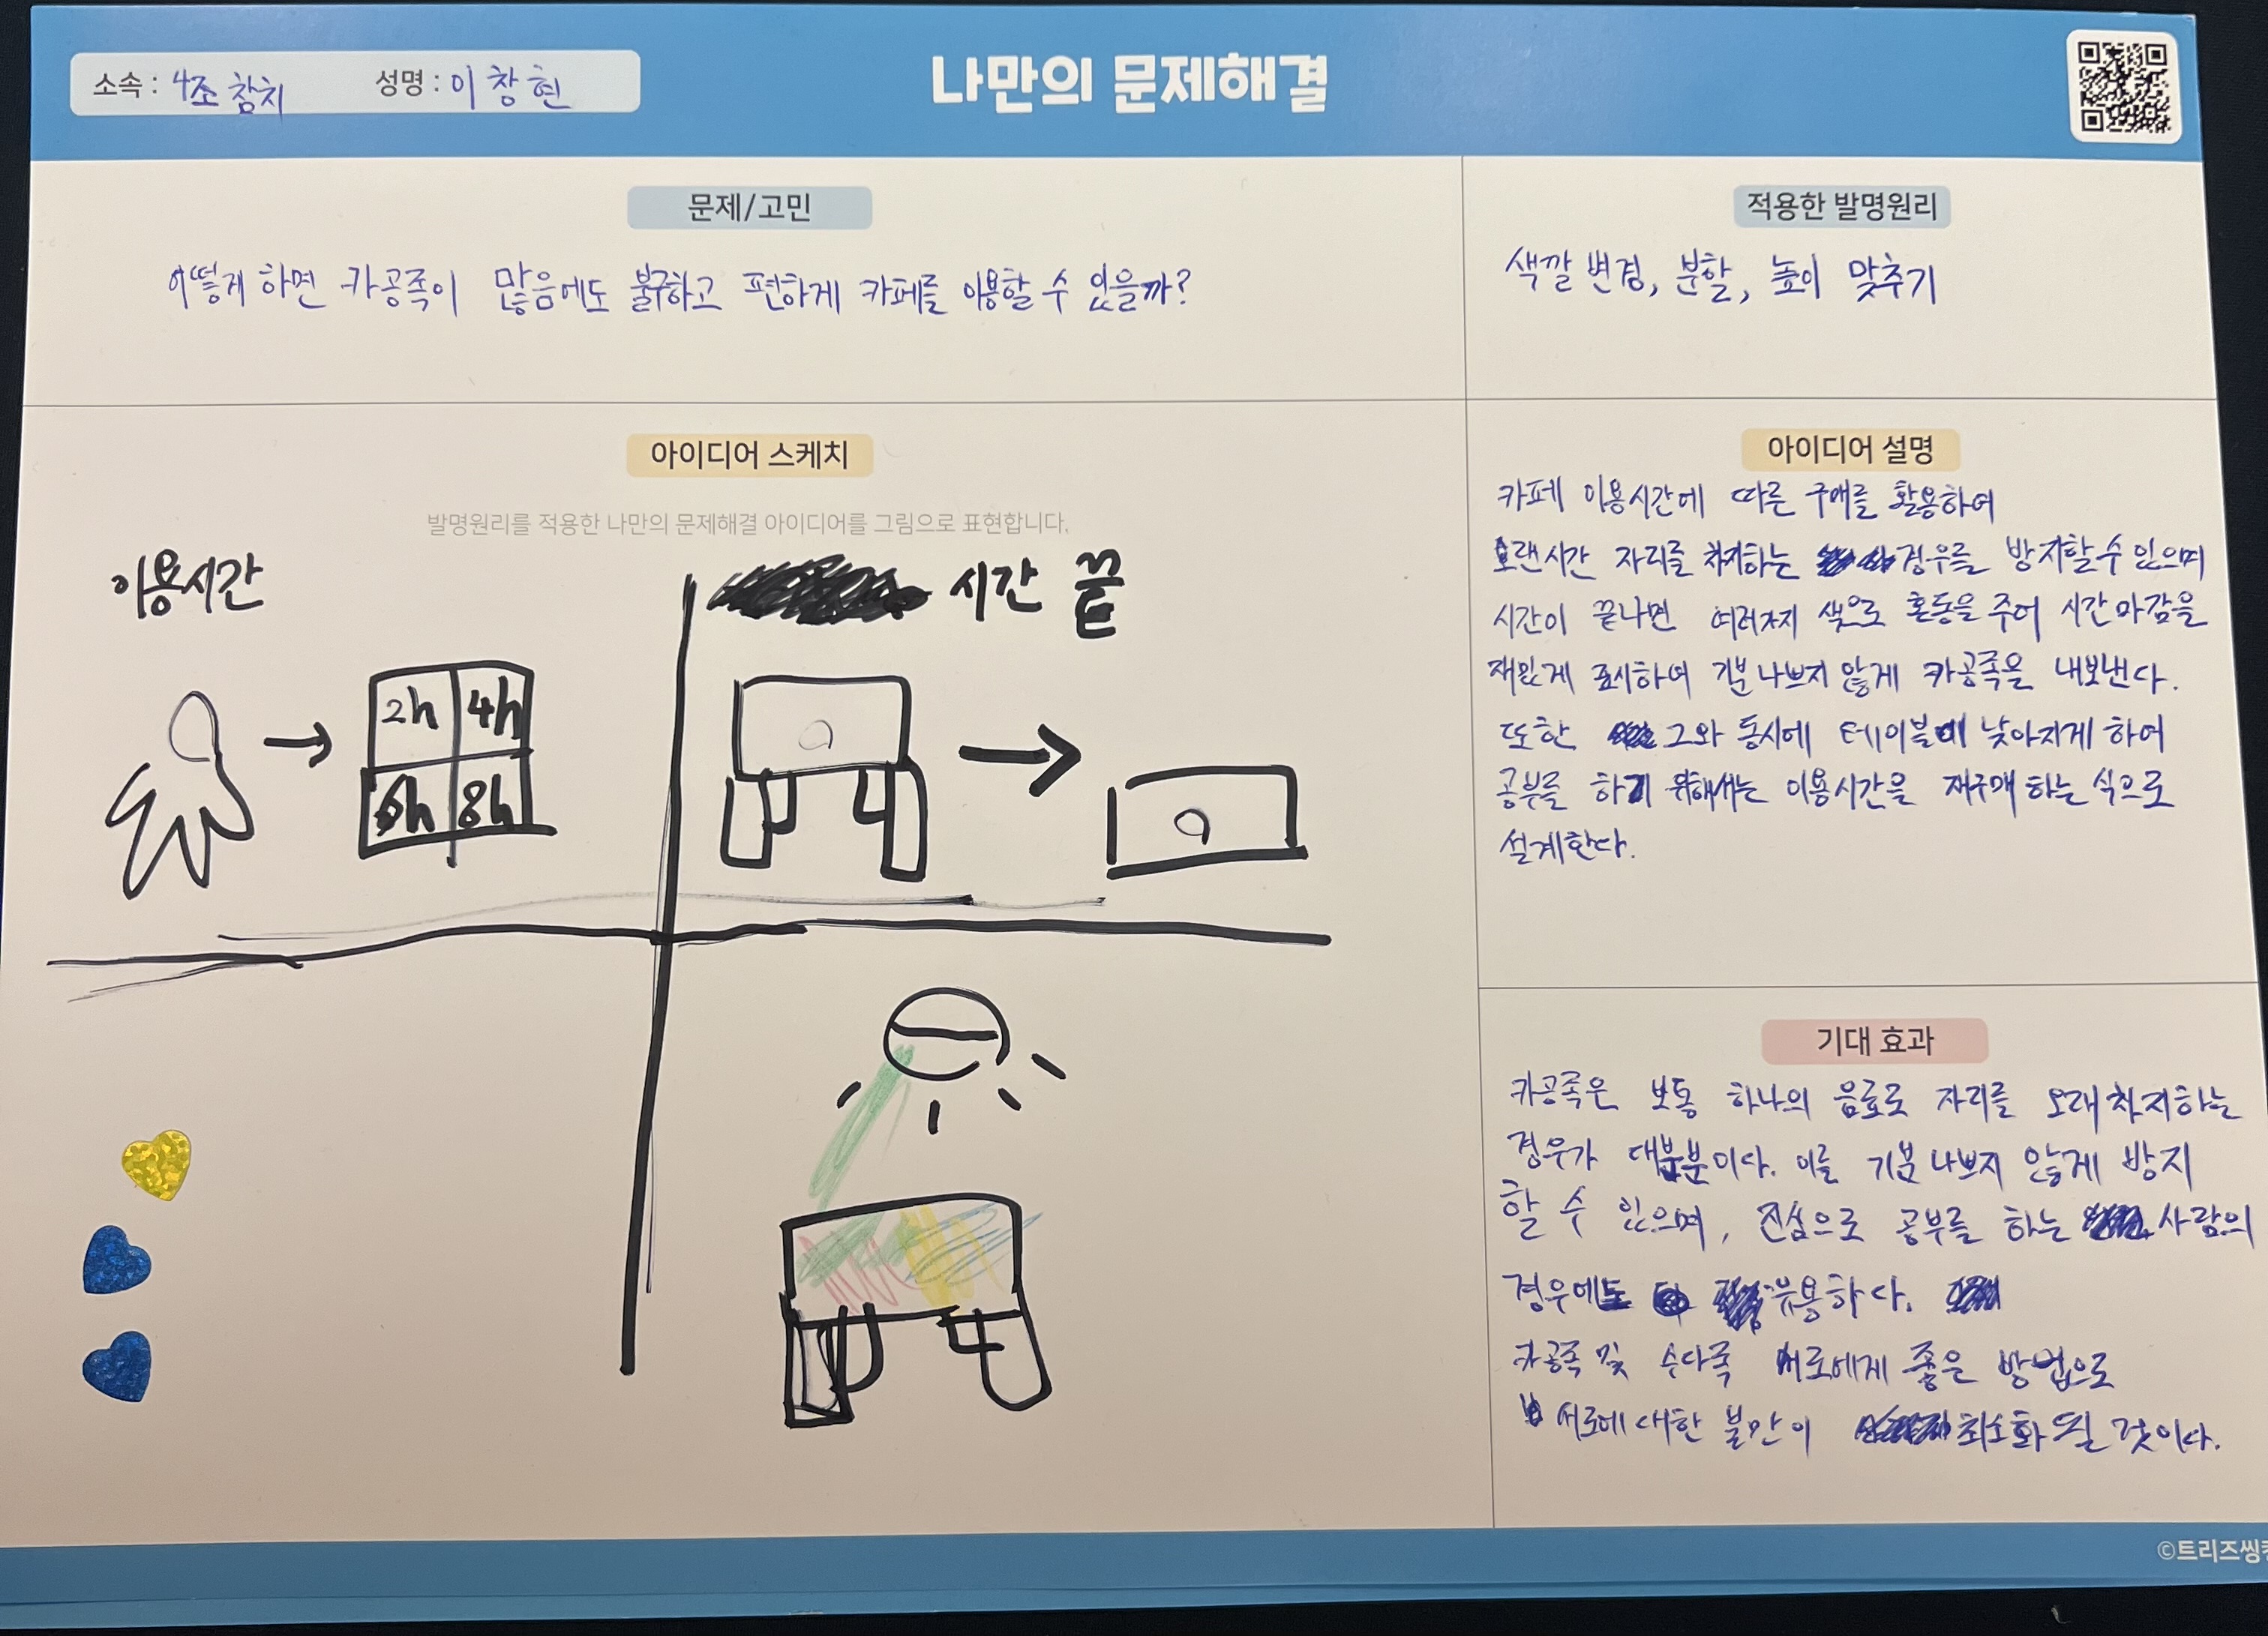 소속 : 4조 참치 성명 : 이창현
나만의 문제해결
문제/고민
어떻게 하면 카공족이 많음에도 불구하고 편하게 카페를 이용할 수 있을까?
적용한 발명원리
색깔 변경, 분할, 높이 맞추기
아이디어 스케치
발명원리를 적용한 나만의 문제해결 아이디어를 그림으로 표현합니다.
이용시간
2h 4h
6h 8h
시간 끝
아이디어 설명
카페 이용시간에 따른 구매를 활용하여
오랜시간 자리를 차지하는 경우를 방지할 수 있으며
시간이 끝나면 여러가지 색으로 혼동을 주어 시간 마감을
재밌게 표시하여 기분 나쁘지 않게 카공족을 내보낸다.
또한 그와 동시에 테이블이 낮아지게 하여
공부를 하기 위해서는 이용시간을 재구매 하는 식으로
설계한다.
기대 효과
카공족은 보통 하나의 음료로 자리를 오래 차지하는
경우가 대부분이다. 이를 기분 나쁘지 않게 방지
할 수 있으며, 진심으로 공부를 하는 사람의
경우에도 유용하다.
카공족 및 수다족 서로에게 좋은 방법으로
서로에 대한 불만이 최소화 될 것이다.
©트리즈씽